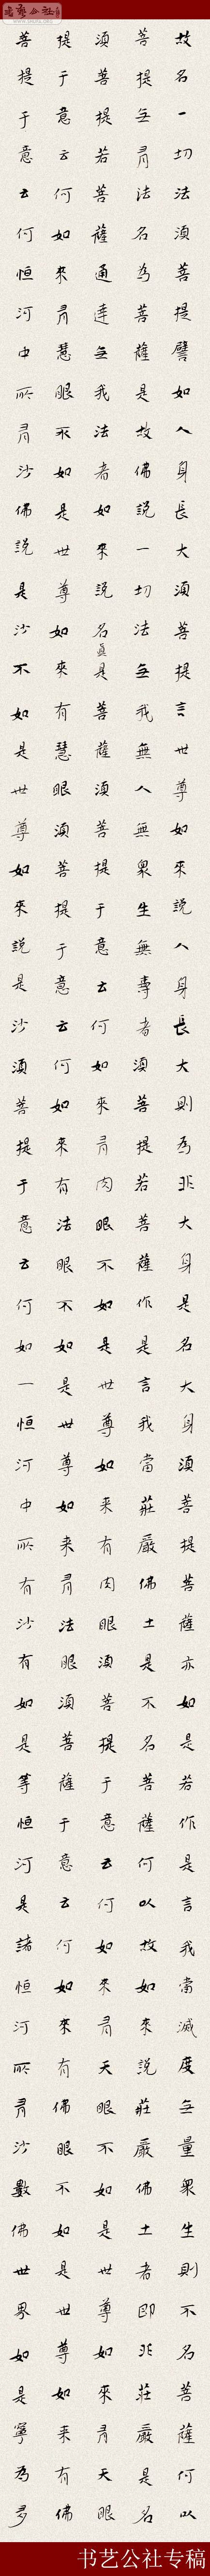 故名一切法須菩提譬如人身長大須菩提言世尊如來說人身長大則為非大身是名大身須菩提菩薩亦如是若作是言我當滅度無量眾生則不名菩薩何以
菩提無有法名為菩薩是故佛說一切法無我無人無眾生無壽者須菩提若菩薩作是言我當莊嚴佛土是不名菩薩何以故如來說莊嚴佛土者即非莊嚴是名
須菩提若菩薩通達無我法者如來說名真是菩薩須菩提于意云何如來有肉眼不如是世尊如来有肉眼須菩提于意云何如來有天眼不如是世尊如來有天眼
提于意云何如來有慧眼不如是世尊如來有慧眼須菩提于意云何如來有法眼不如是世尊如来有法眼須菩薩于意云何如來有佛眼不如是世尊如来有佛
菩提于意云何恒河中所有沙佛說是沙不如是世尊如來說是沙須菩提于意云何如一恒河中所有沙有如是等恒河是諸恒河所有沙數佛世界如是寧為多
书艺公社专稿